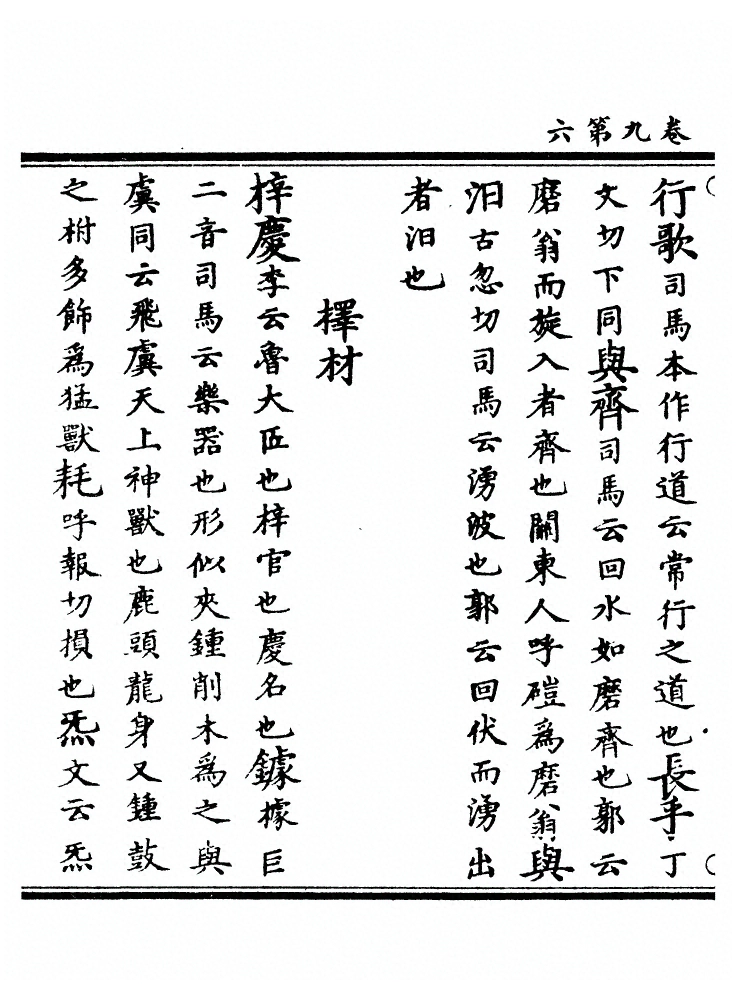 卷九第六
行歌司馬本作行道云常行之道也長乎丁
丈切下同與齊司馬云回水如磨齊也郭云
磨翁而旋入者齊也關東人呼磑為磨翁與
汨古忽切司馬云湧波也郭云回伏而湧出
者汨也
擇材
梓慶李云魯大匠也梓官也慶名也鐻據巨
二音司馬云樂器也形似夾鍾削木為之與
虡同云飛虡天上神獸也鹿頭龍身又鍾鼓
之柎多飾為猛獸耗呼報切損也炁文云炁